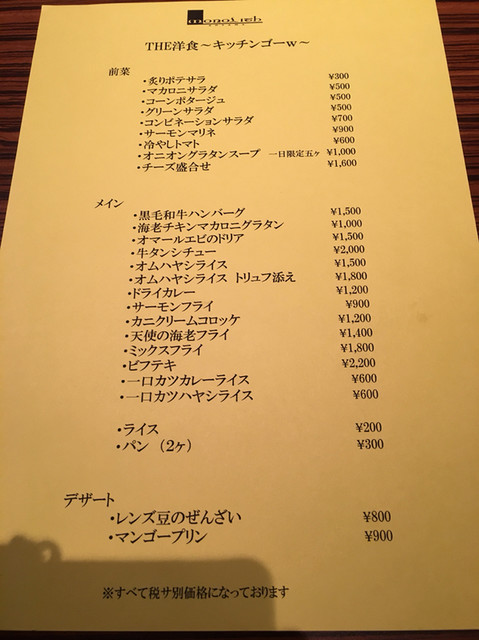 monolish
THE洋食～キッチンゴーw～
前菜
・炙りポテサラ ¥300
・マカロニサラダ ¥500
・コーンポタージュ ¥500
・グリーンサラダ ¥500
・コンビネーションサラダ ¥700
・サーモンマリネ ¥900
・冷やしトマト ¥600
・オニオングラタンスープ 一日限定五ヶ ¥1,000
・チーズ盛合せ ¥1,600
メイン
・黒毛和牛ハンバーグ ¥1,500
・海老チキンマカロニグラタン ¥1,000
・オマールエビのドリア ¥1,500
・牛タンシチュー ¥2,000
・オムハヤシライス ¥1,500
・オムハヤシライス トリュフ添え ¥1,800
・ドライカレー ¥1,200
・サーモンフライ ¥900
・カニクリームコロッケ ¥1,200
・天使の海老フライ ¥1,400
・ミックスフライ ¥1,800
・ビフテキ ¥2,200
・一口カツカレーライス ¥600
・一口カツハヤシライス ¥600
・ライス ¥200
・パン （2ヶ） ¥300
デザート
・レンズ豆のぜんざい ¥800
・マンゴープリン ¥900
※すべて税サ別価格になっております